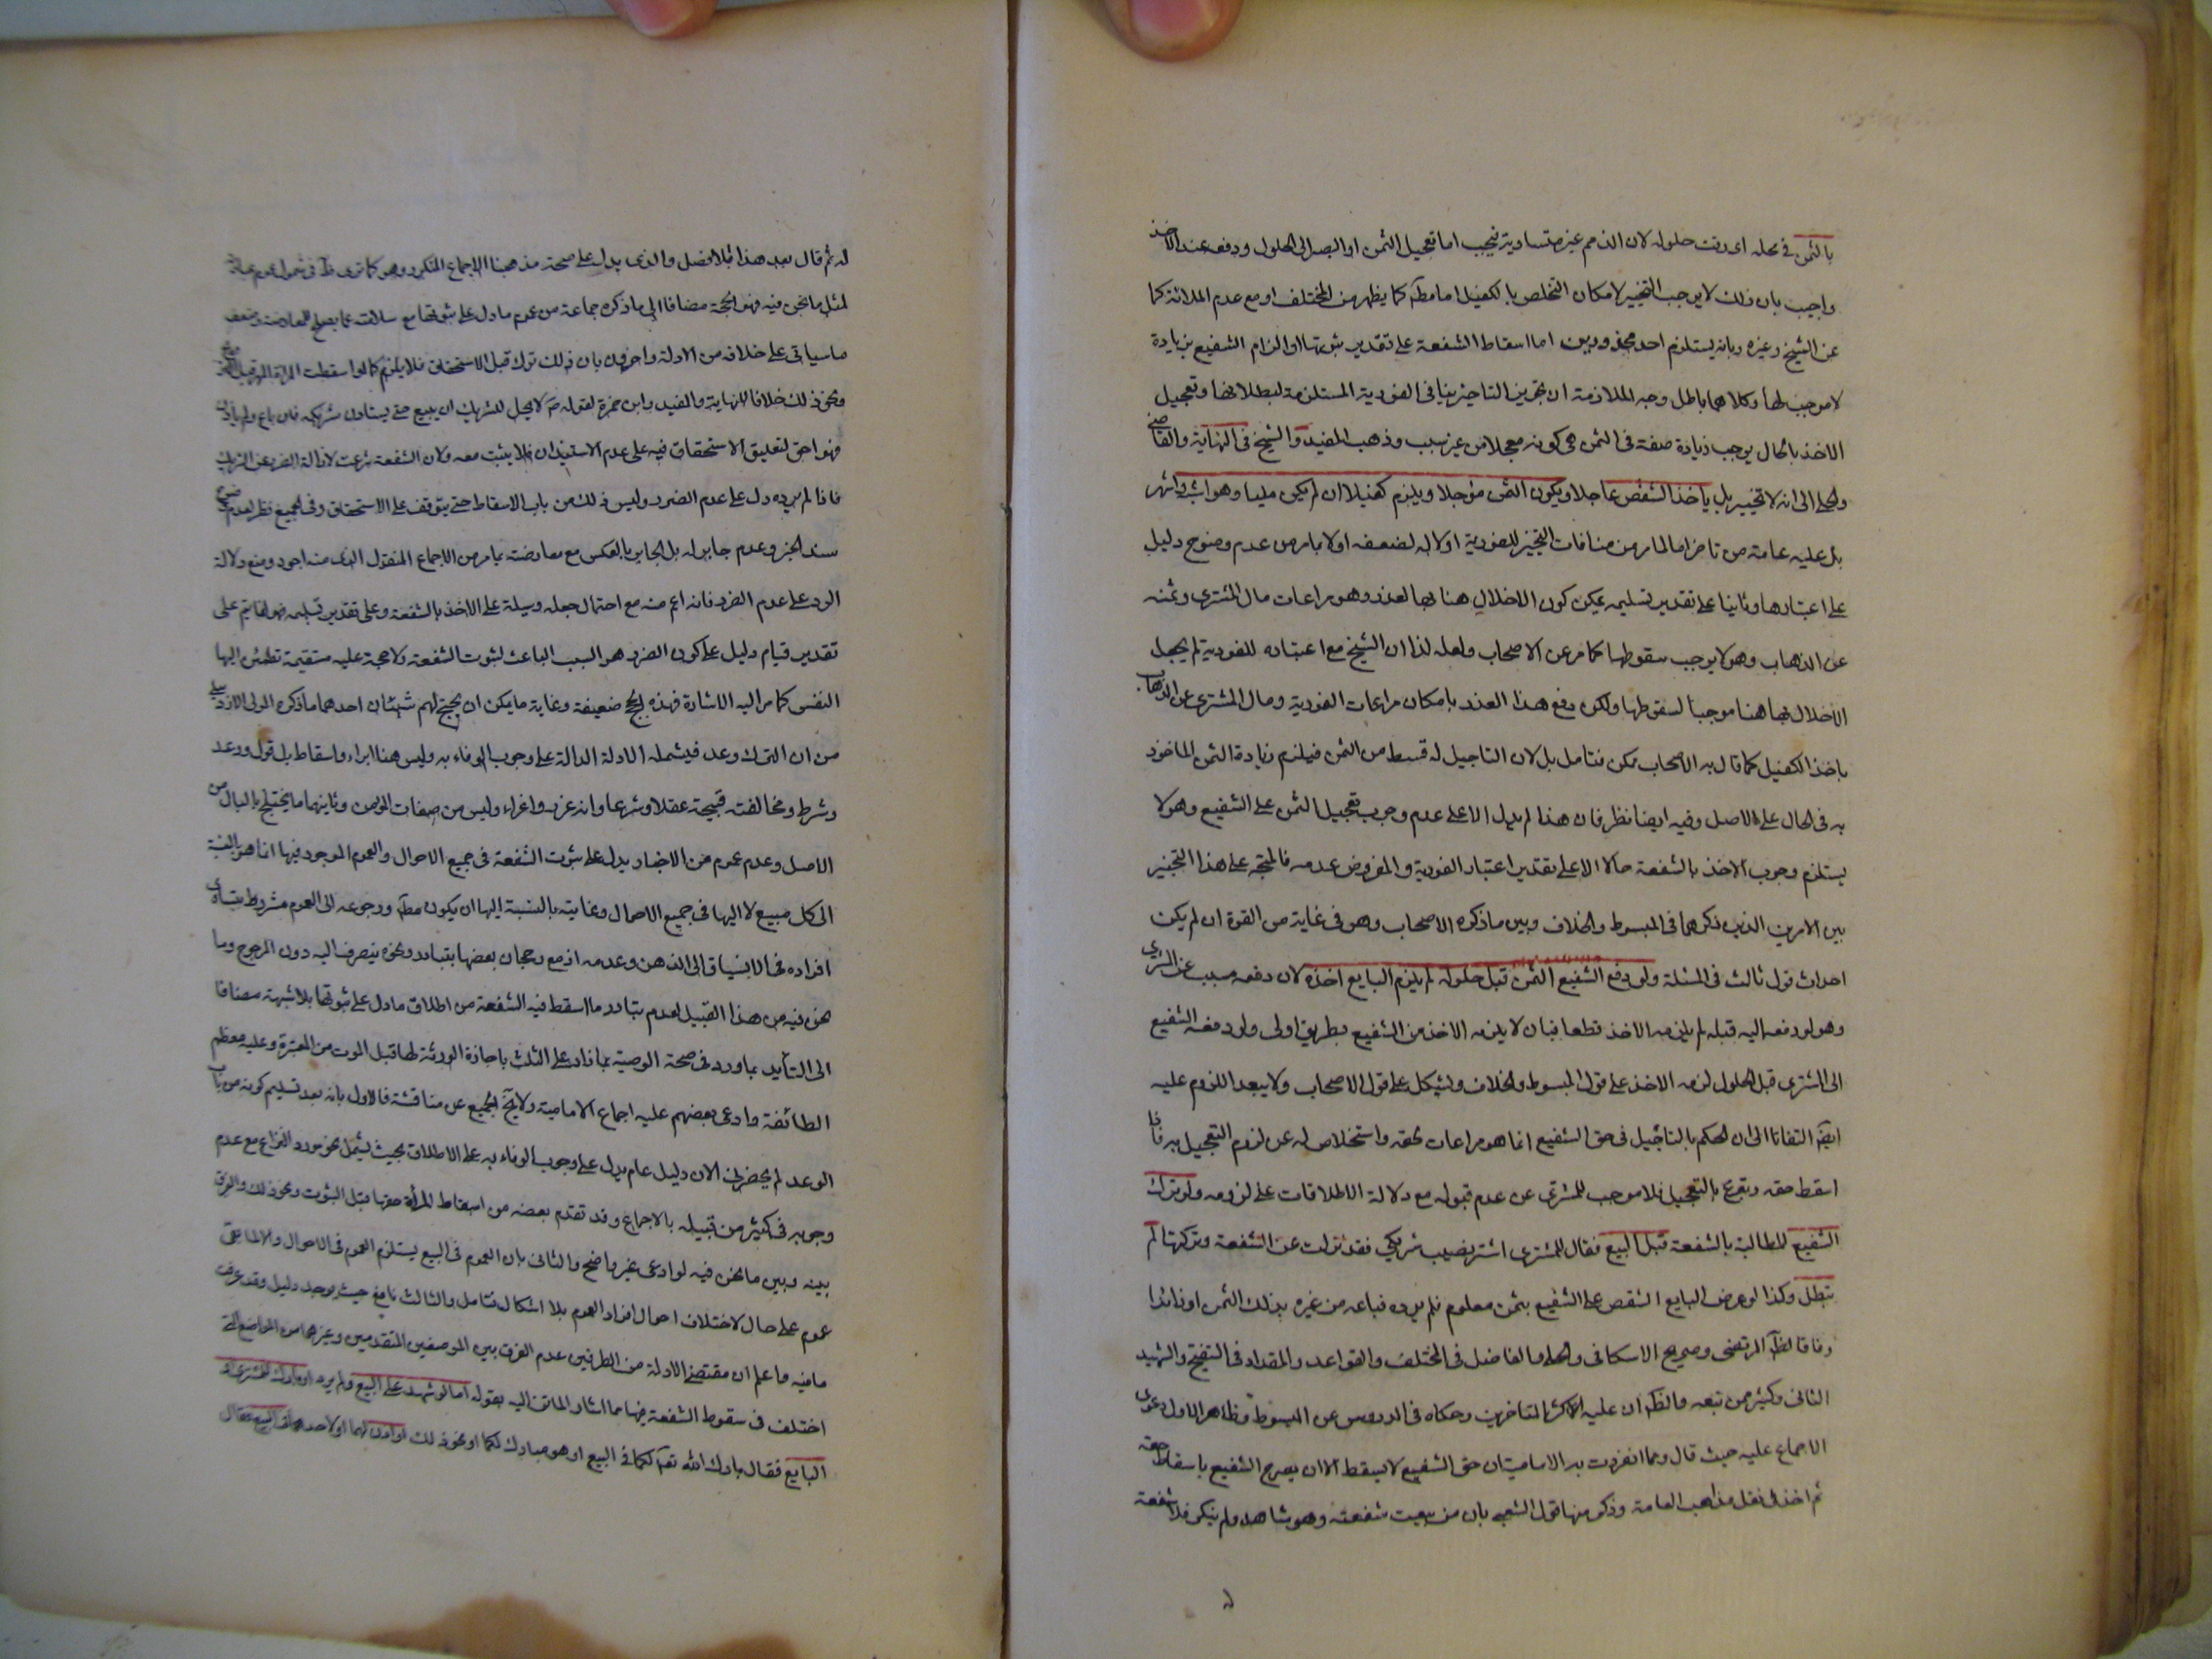 بالثمن في محله اى وقت حلوله لان الذمم غير متساوية فيجب اما تعجيل الثمن او الصبر الى الحلول ودفعه عند الاخذ
واجيب بان ذلك لا يوجب التخيير لامكان التخلص بالكفيل اما مطآ كما يظهر من المختلف او مع عدم الملائة كما
عن الشيخ وغيره وبانه يستلزم احد محذورين اما اسقاط الشفعة على تقدير ثبوتها او الزام الشفيع بزيادة
لا موجب لها وكلاهما باطل وجه الملازمة ان تجويز التاخير ينافى الفورية المستلزمة لبطلانها وتعجيل
الاخذ بالحال يوجب زيادة صفة فى الثمن هى كونه معجلا من غير سبب وذهب المفيد والشيخ فى النهاية والقاضى
والحلى الى انه لا تخيير بل ياخذ الشقص عاجلا ويكون الثمن مؤجلا ويلزم كفيلا ان لم يكن مليا وهو اشبه واشهر
بل عليه عامة من تاخر اما لما مر من منافات التخيير للفورية اولا له لضعفه اولا بما مر من عدم وضوح دليل
على اعتبارها وثانيا على تقدير تسليمه يمكن كون الاخلال هنا بها لعذر وهو مراعات مال المشترى وثمنه
عن الذهاب وهو لا يوجب سقوطها كما مر عن الاصحاب ولعله لذا ان الشيخ مع اعتباره للفورية لم يجعل
الاخلال بها هنا موجبا لسقوطها ولكن دفع هذا العذر بامكان مراعات الفورية ومال المشترى عن الذهاب
باخذ الكفيل كما قال به الاصحاب ممكن فتامل بل لان التاجيل له قسط من الثمن فيلزم زيادة الثمن الماخوذ
به فى الحال على الاصل وفيه ايضا نظر فان هذا لم يدل الا على عدم وجوب تعجيل الثمن على الشفيع وهو لا
يستلزم وجوب الاخذ بالشفعة حالا الا على تقدير اعتبار الفورية والمفروض عدمه فالمتجه على هذا التخيير
بين الامرين الذين ذكرهما فى المبسوط والخلاف وبين ما ذكره الاصحاب وهو فى غاية من القوة ان لم يكن
احداث قول ثالث فى المسئلة ولو دفع الشفيع الثمن قبل حلوله لم يلزم البايع اخذه لان دفعه مسبب عن المشترى
وهو لو دفعه اليه قبله لم يلزمه الاخذ قطعا فبان لا يلزمه الاخذ من الشفيع بطريق اولى ولو دفعه الشفيع
الى المشترى قبل الحلول لزمه الاخذ على قول المبسوط والخلاف ويشكل على قول الاصحاب ولا يبعد اللزوم عليه
ايضا التفاتا الى ان الحكم بالتاجيل فى حق الشفيع انما هو مراعات لحقه واستخلاص له عن لزوم التعجيل به فاذا
اسقط حقه وتبرع بالتعجيل فلا موجب للمشترى عن عدم قبوله مع دلالة الاطلاقات على لزومه ولو ترك
الشفيع المطالبة بالشفعة قبل البيع فقال للمشترى اشتر نصيب شريكى فقد نزلت عن الشفعة وتركتها لم
تبطل وكذا لو عرض البايع الشقص على الشفيع بثمن معلوم فلم يرده فباعه من غيره بذلك الثمن او زائدا
وفاقا لظآ المرتضى وصريح الاسكافى والحلى والفاضل فى المختلف والقواعد والمقداد فى التنقيح والشهيد
الثانى وكثير ممن تبعه والظآ ان عليه اكثر المتاخرين وحكاه فى الدروس عن المبسوط وظاهر الاول دعوى
الاجماع عليه حيث قال ومما انفردت به الامامية ان حق الشفيع لا يسقط الا ان يصرح الشفيع باسقاط حقه
ثم اخذ فى نقل مذاهب العامة وذكر منها قول الشعبى بان من بيعت شفعته وهو شاهد ولم ينكر فلا شفعة
له ثم قال بعد هذا بلا فصل والذى يدل على صحة مذهبنا الاجماع المتكرر وهو كما ترى ظآ فى شمول
لمثل ما نحن فيه فهو الحجة مضافا الى ما ذكره جماعة من عموم ما دل على ثبوتها مع سلامته عما يصلح للمعارضة وضعف
ما سياتى على خلافه من الادلة واحرون بان ذلك ترك قبل الاستحقاق فلا يلزم كما لو اسقطت المراة المهر قبل التزويج
ونحو ذلك خلافا للنهاية والمفيد وابن حمزة لقوله ص لا يحل للشريك ان يبيع حتى يستاذن شريكه فان باع ولم ياذن
فهو احق لتعليق الاستحقاق فيه على عدم الاستيذان فلا يثبت معه ولان الشفعة شرعت لازالة الضرر عن الشريك
فاذا لم يرده دل على عدم الضرر وليس ذلك من باب الاسقاط حتى يتوقف على الاستحقاق وفى الجميع نظر لعدم وضوح
سند الخبر وعدم جابر له بل الجابر بالعكس مع معارضته بما مر من الاجماع المنقول الذى سنده اجود ومنع دلالة
الرد على عدم الضرر فانه اعم منه مع احتمال جعله وسيلة على الاخذ بالشفعة وعلى تقدير تسليمه فهو انما يتم على
تقدير قيام دليل على كون الضرر هو السبب الباعث لثبوت الشفعة ولا حجة عليه مستقيمة تطمئن اليها
النفس كما مر اليه الاشارة فهذه الحجج ضعيفة وغاية ما يمكن ان يحتج لهم شيئان احدهما ما ذكره المولى الاردبيلى
من ان الترك وعد فيشمله الادلة الدالة على وجوب الوفاء به وليس هنا ابراء واسقاط بل قول ووعد
وشرط ومخالفته قبيحة عقلا وشرعا وانه غرور واغراء وليس من صفات المؤمن وثانيهما ما يختلج بالبال من
الاصل وعدم عموم من الاخبار يدل على ثبوت الشفعة فى جميع الاحوال والعموم الموجود فيها انما هو بالنسبة
الى كل مبيع لا اليها فى جميع الاحوال وغايته بالنسبة اليها ان يكون مطآ ورجوعه الى العموم مشروط بتساوى
افراده فى الانسياق الى الذهن وعدمه اذ مع رجحان بعضها بتبادر ونحوه ينصرف اليه دون المرجوح وما
نحن فيه من هذا القبيل لعدم تبادر ما اسقط فيه الشفعة من اطلاق ما دل على ثبوتها بلا شبهة مضافا
الى التأيد بما ورد فى صحة الوصية بما زاد على الثلث باجازة الورثة لها قبل الموت من المعتبرة وعليه معظم
الطائفة وادعى بعضهم عليه اجماع الامامية ولا يخ الجميع عن مناقشة فالاول بانه بعد تسليم كونه من باب
الوعد لم يحضرنى الان دليل عام يدل على وجوب الوفاء به على الاطلاق بحيث يشمل نحو مورد النزاع مع عدم
وجوبه فى كثير من قبيله بالاجماع وقد تقدم بعضه من اسقاط المرأة حقها قبل الثبوت ونحو ذلك والفرق
بينه وبين ما نحن فيه لو ادعى غير واضح والثانى بان العموم فى البيع يستلزم العموم فى الاحوال والا لما بقى
عموم على حال لاختلاف احوال افراد العموم بلا اشكال فتامل والثالث نافع حيث لم يوجد دليل وقد عرفت
ما فيه واعلم ان مقتضى الادلة من الطرفين عدم الفرق بين الموضعين المتقدمين وغيرهما من المواضع التى
اختلف فى سقوط الشفعة فيها مما اشار الماتن اليه بقوله اما لو شهد على البيع ولم يرد او بارك للمشترى او
البايع فقال بارك الله تعـ لكما فى البيع او هو مبارك لكما او نحو ذلك او اذن لهما او لاحدهما فى البيع فقال